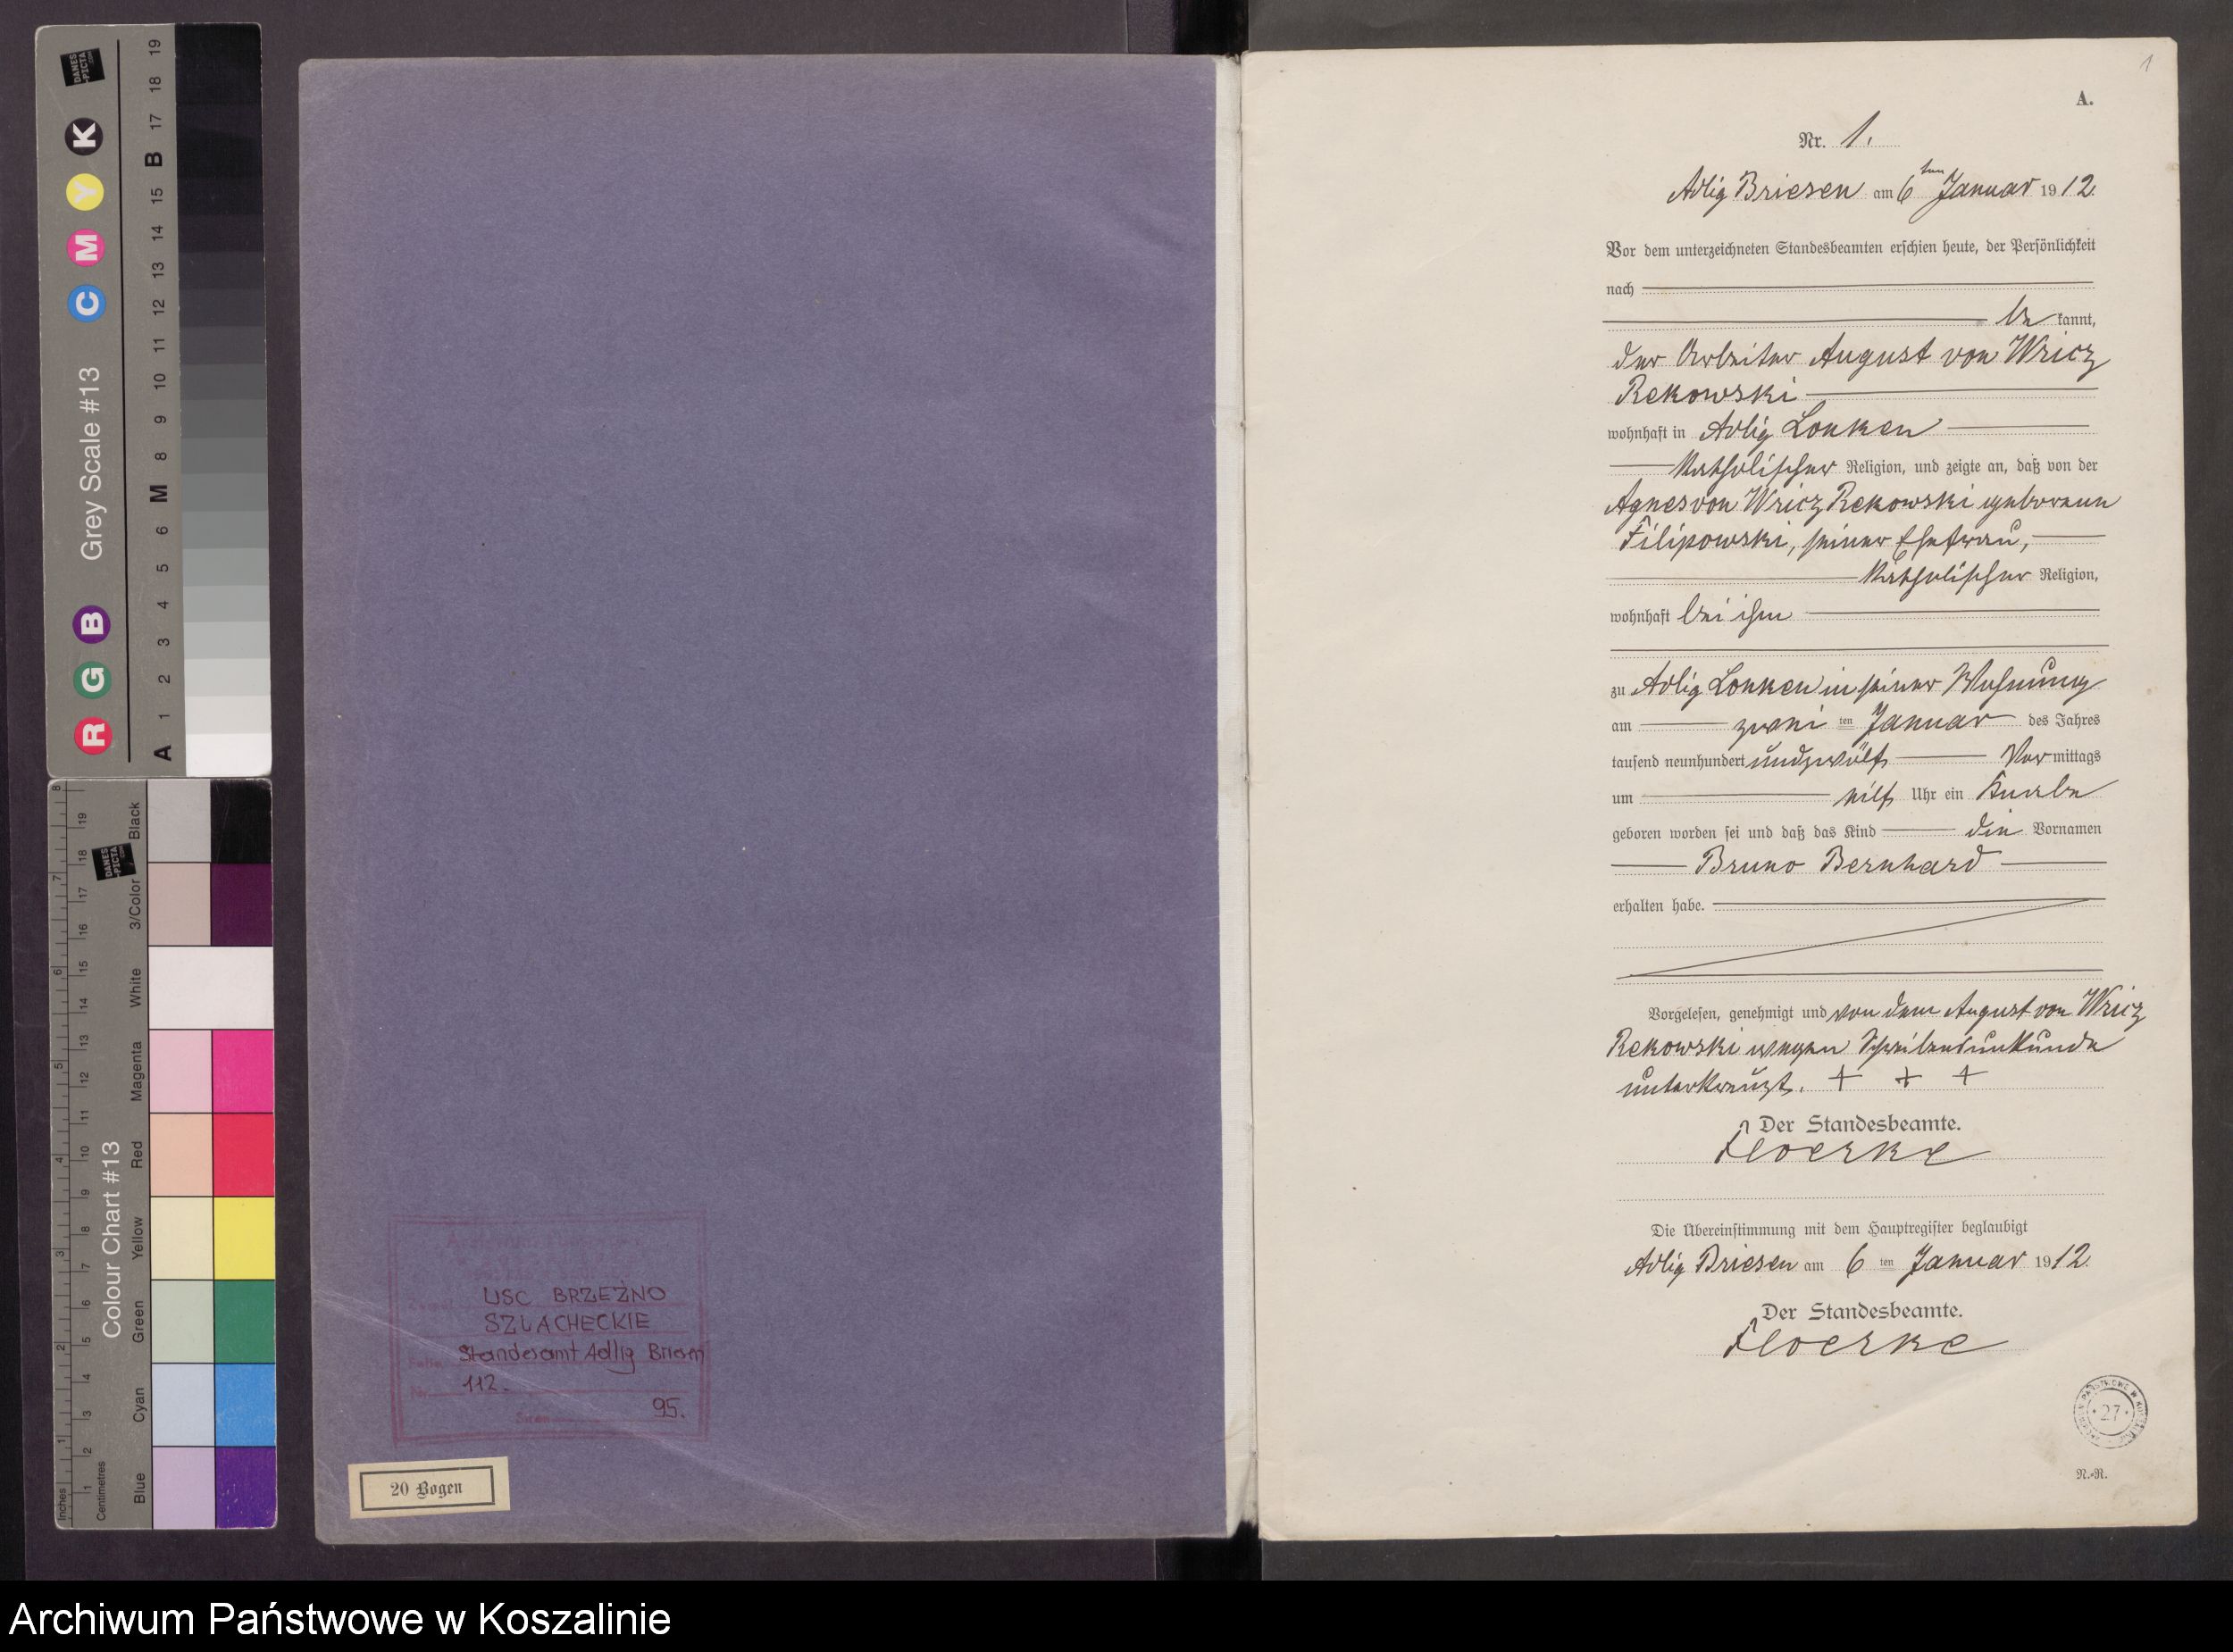 DANES
-PICTA
.COM
Grey Scale #13
R G B C M Y K
A 1 2 3 4 5 6 M 8 9 10 11 12 13 14 15 B 17 18 19
Colour Chart #13
Blue Cyan Green Yellow Red Magenta White 3/Color Black
Inches 1 2 3 4 5 6 7 8
Centimetres 1 2 3 4 5 6 7 8 9 10 11 12 13 14 15 16 17 18 19
DANES
-PICTA
.COM
USC BRZEŹNO
SZLACHECKIE
Standesamt Adlig Briesen
Nr. 112.
95.
20 Bogen
1
A.
Nr. 1.
Adlig Briesen am 6ten Januar 1912.
Vor dem unterzeichneten Standesbeamten erschien heute, der Persönlichkeit
nach
be kannt,
der Arbeiter August von Wricz
Rekowski
wohnhaft in Adlig Lonken
katholischer Religion, und zeigte an, daß von der
Agnes von Wricz Rekowski geborenen
Filipowski, seiner Ehefrau,
katholischer Religion,
wohnhaft bei ihm
zu Adlig Lonken in seiner Wohnung
am zwei ten Januar des Jahres
tausend neunhundert undzwölf Vor mittags
um elf Uhr ein Knabe
geboren worden sei und daß das Kind die Vornamen
Bruno Bernhard
erhalten habe.
Vorgelesen, genehmigt und von dem August von Wricz
Rekowski wegen Schreibensunkunde
unterkreuzt. + + +
Der Standesbeamte.
Floerke
Die Übereinstimmung mit dem Hauptregister beglaubigt
Adlig Briesen am 6 ten Januar 1912.
Der Standesbeamte.
Floerke
27
N.-R.
Archiwum Państwowe w Koszalinie